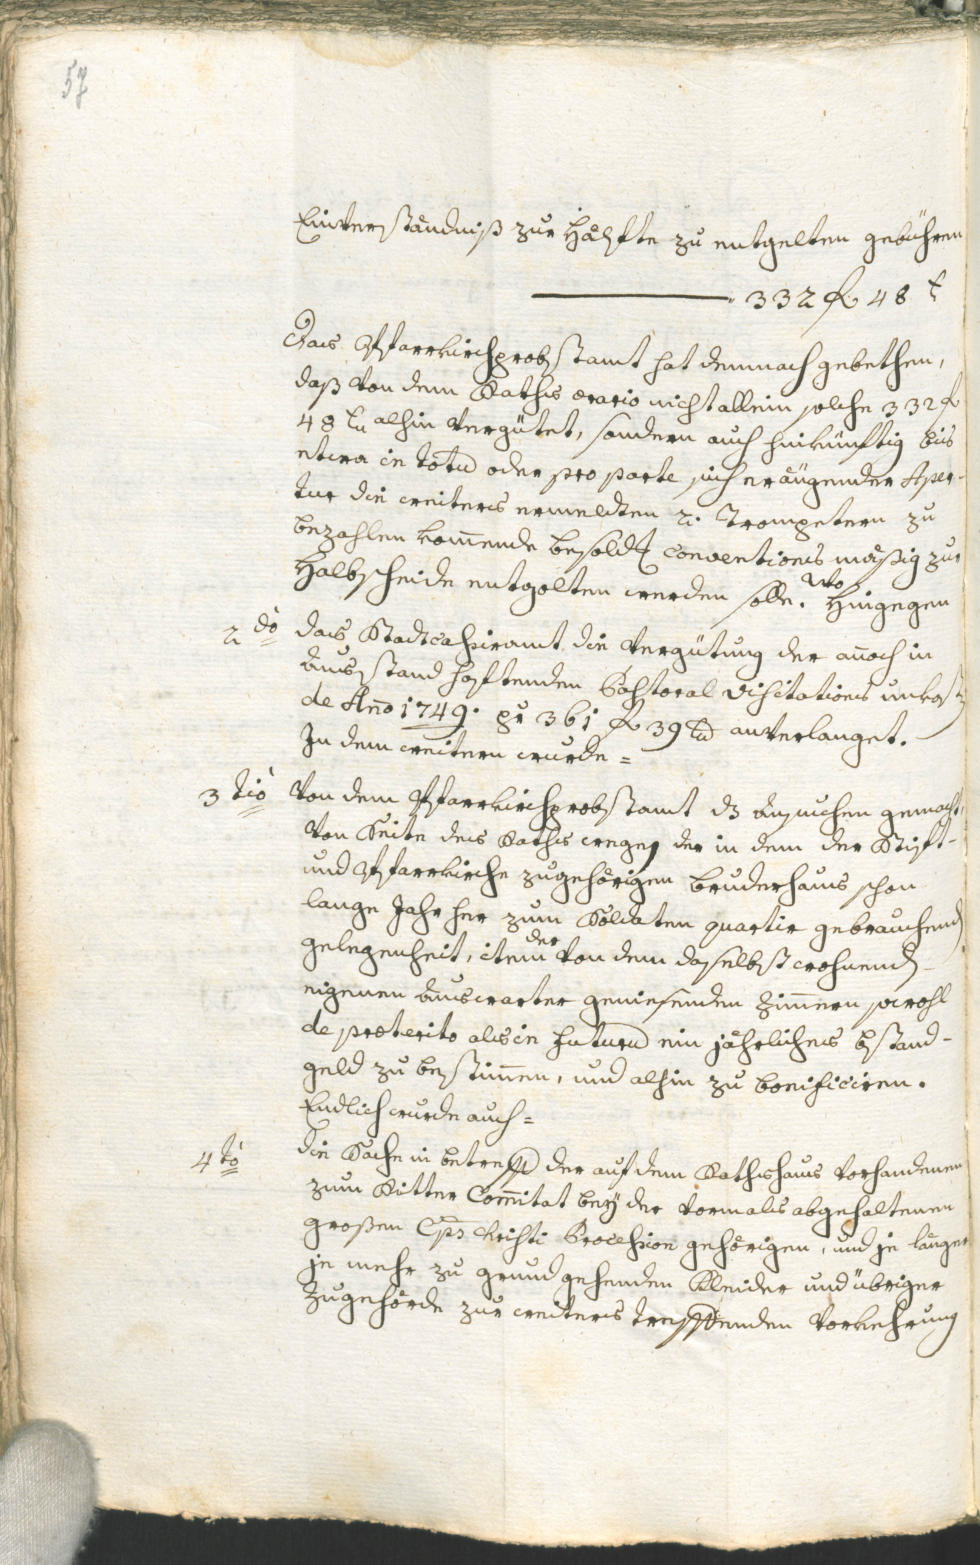 57
Einverständniß zur Hälfte zu entgelten gebühren
332 f 48 x
Das Pfarrkirchprobstamt hat demnach gebethen,
daß von dem Raths ærario nicht allein solche 332 f
48 alhin vergütet, sondern auch hinkünftig bis
etwa in totu oder pro parte sich eräugender Aper-
tur die weiters ermeldten 2. Trompetern zu
bezahlen kom̄ende besold conventions mäßig zur
Halbscheide entgolten werden solle. Wo Hingegen
2do das Stadtcassiramt die Vergütung der an̄och in
Ausstand haftenden Pastoral Visitations unkost
de An̄o 1749. pr 361 f 39 anverlanget.
In dem weitern wurde =
3tio Von dem Pfarrkirchprobstamt dz Ansuchen gemacht,
Von Seite des Raths wegen der in dem der Stift-
und Pfarrkirche zugehörigen bruderhaus schon
lange Jahr her zum Soldaten quartir gebrauchend
gelegenheit, item der von dem daselbst wohnend
eigenen Auswarter geniesenden Zim̄ern sowohl
de præterito als in futuru ein jährliches bstand-
geld zu bestim̄en, und alhin zu bonificiren.
Endlich wurde auch =
4to die Sache in betreff der auf dem Rathshaus vorhandenen
zum Ritter Com̄itat beÿ der vormals abgehaltenen
großen Cps Christi Procession gehörigen, und je länger
je mehr zu grund gehenden Kleider und übriger
Zugehörde zur weiters treffenden Vorkehrung